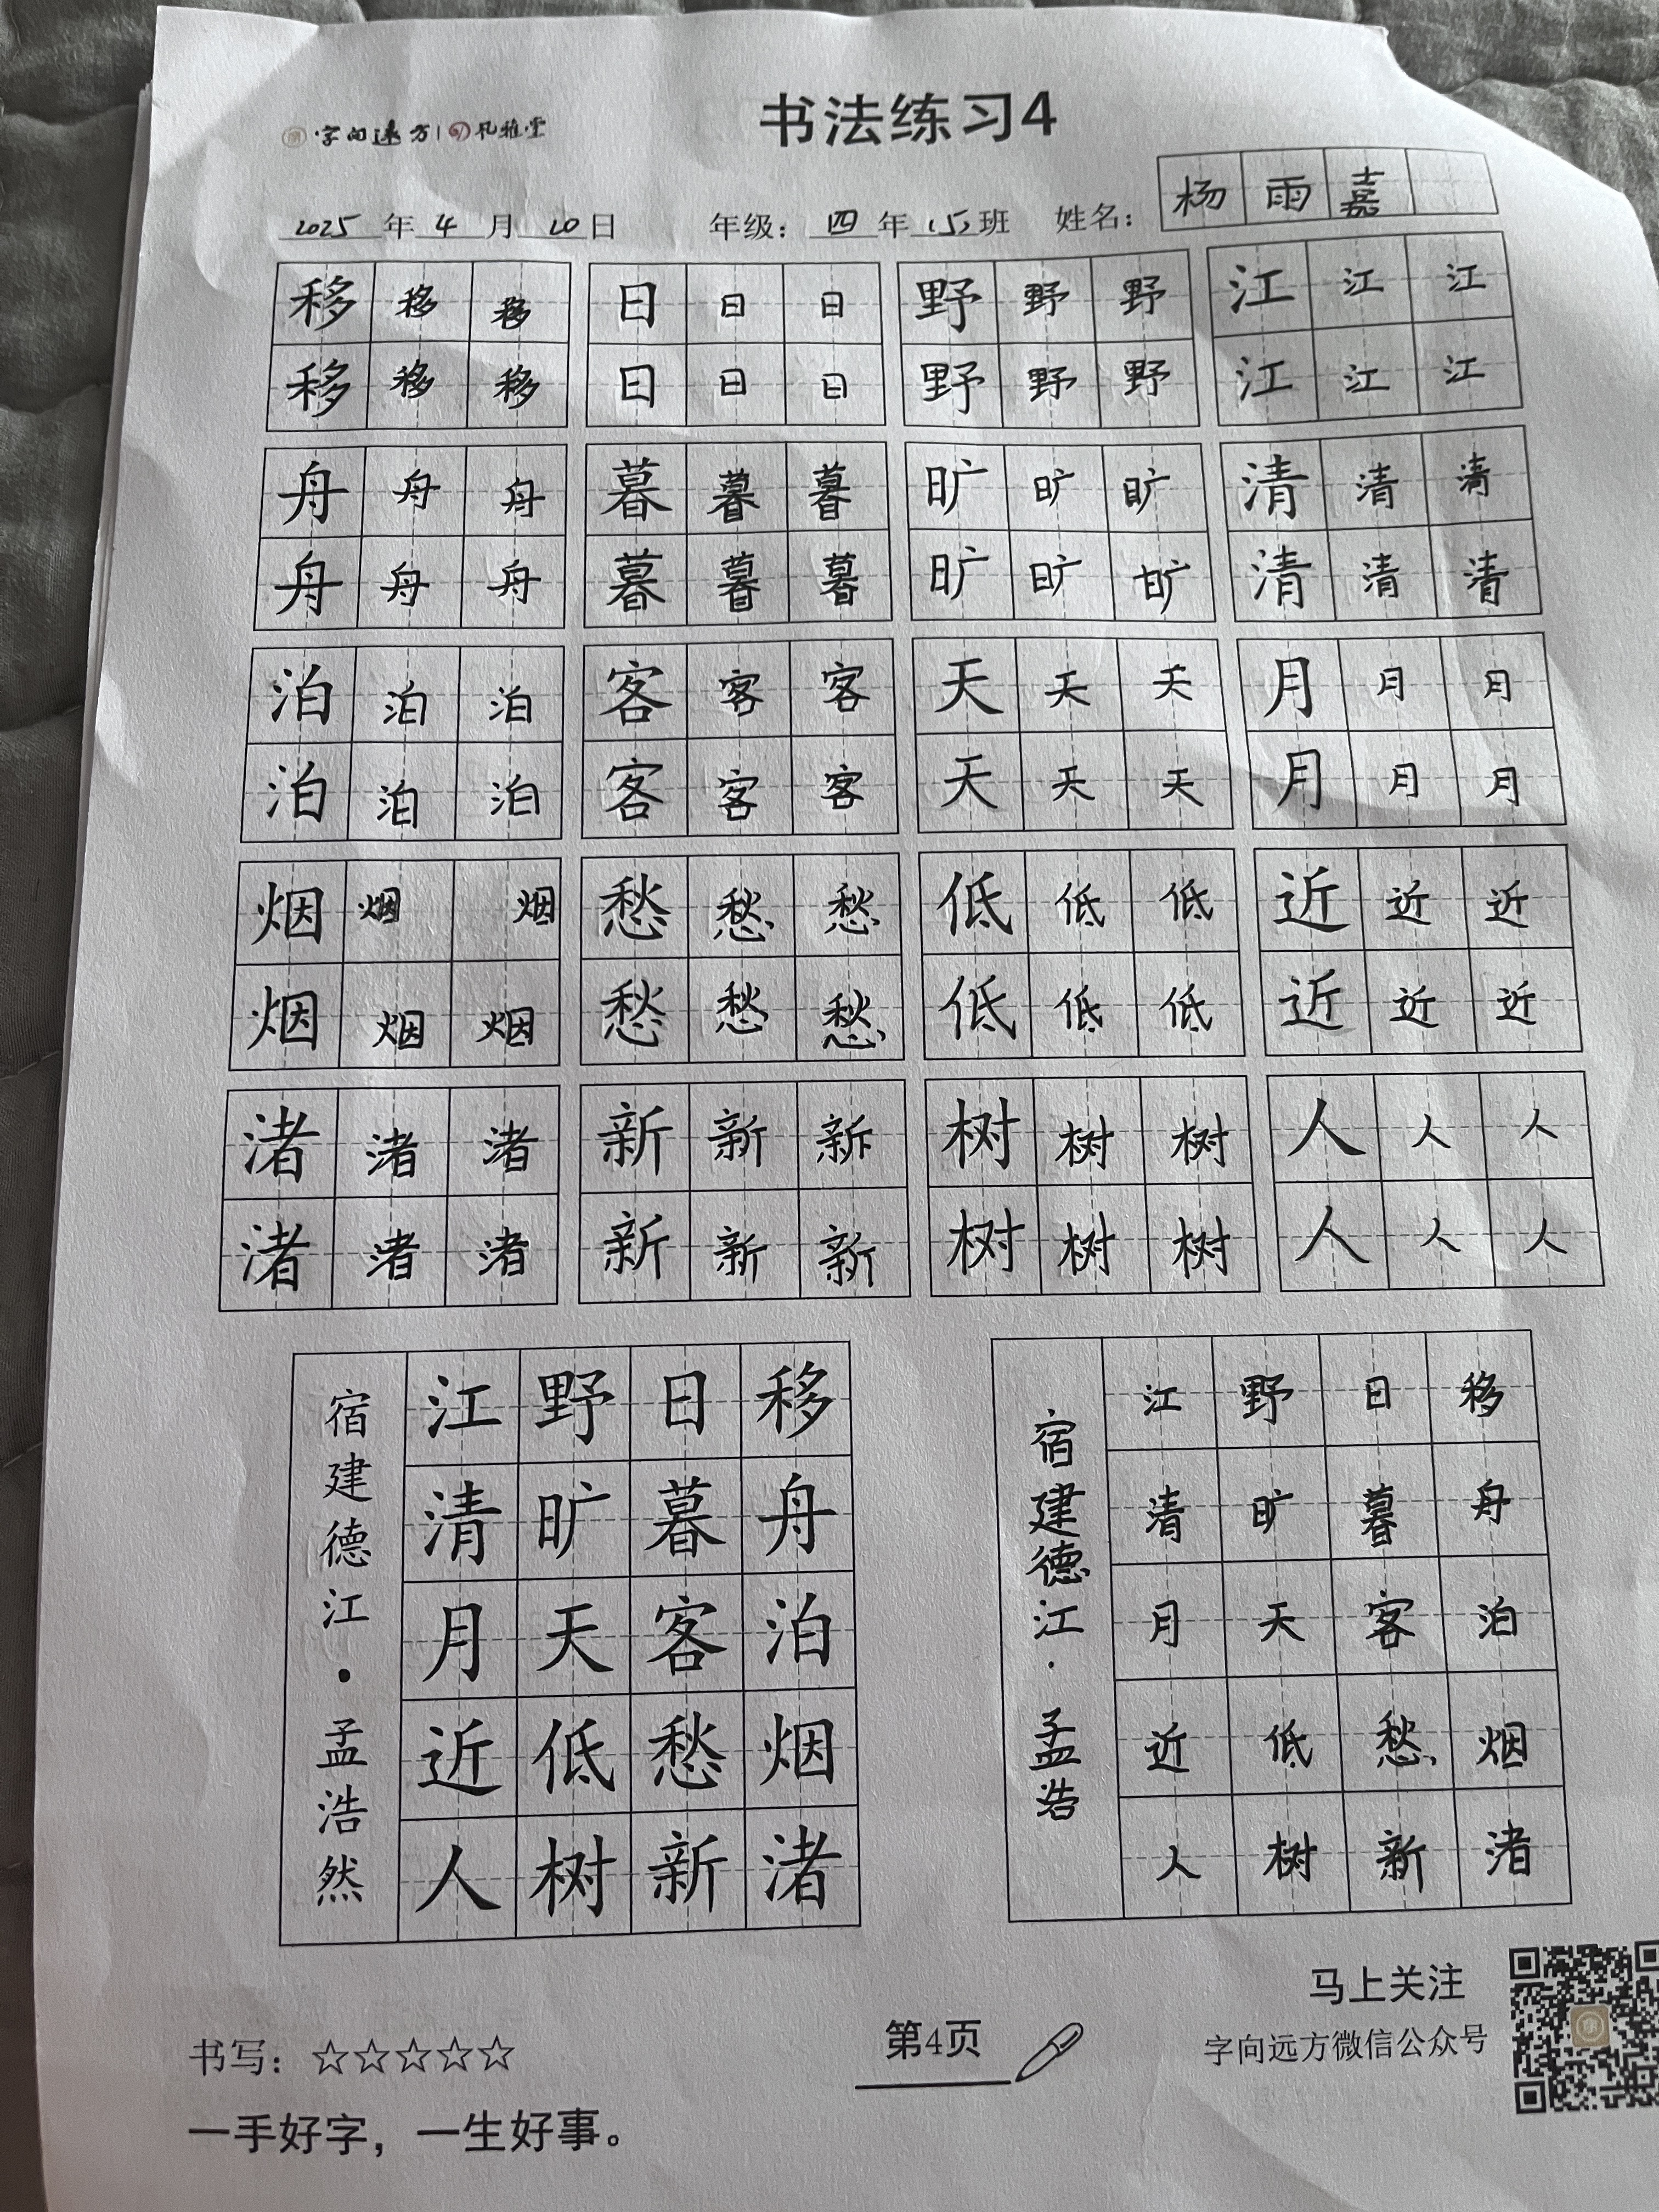 字向远方 孔雅堂
书法练习4
2025年4月20日 年级：四年(5)班 姓名：杨雨嘉
移移移 日日日 野野野 江江江
移移移 日日日 野野野 江江江
舟舟舟 暮暮暮 旷旷旷 清清清
舟舟舟 暮暮暮 旷旷旷 清清清
泊泊泊 客客客 天天天 月月月
泊泊泊 客客客 天天天 月月月
烟烟烟 愁愁愁 低低低 近近近
烟烟烟 愁愁愁 低低低 近近近
渚渚渚 新新新 树树树 人人人
渚渚渚 新新新 树树树 人人人
移舟泊烟渚
日暮客愁新
野旷天低树
江清月近人
宿建德江·孟浩然
移舟泊烟渚
日暮客愁新
野旷天低树
江清月近人
宿建德江·孟浩
书写：☆☆☆☆☆
一手好字，一生好事。
第4页
马上关注
字向远方微信公众号